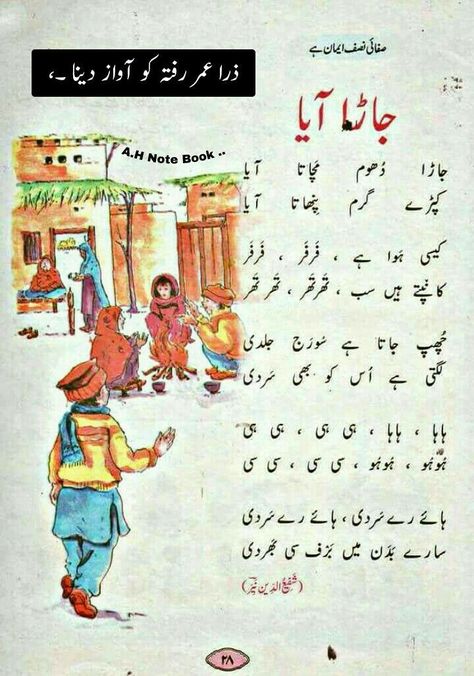 صفائی نصف ایمان ہے
ذرا عمر رفتہ کو آواز دینا ۔،
جاڑا آیا
A.H Note Book ..
جاڑا دُھوم مَچاتا آیا
کپڑے گرم پِنھاتا آیا
کیسی ہَوا ہے ، فَرفَر ، فَرفَر
کانپتے ہیں سب ، تَھرتَھر ، تَھر تَھر
چُھپ جاتا ہے سُورَج جلدی
لگتی ہے اُس کو بھی سَردی
ہاہا ، ہاہا ، ہی ہی ، ہی ہی
ہُوہُو ، ہُوہُو ، سی سی ، سی سی
ہائے رے سَردی ، ہائے رے سَردی
سارے بَدَن میں بَرَف سی بَھردی
(شفیع الدین نیّر)
۲۸